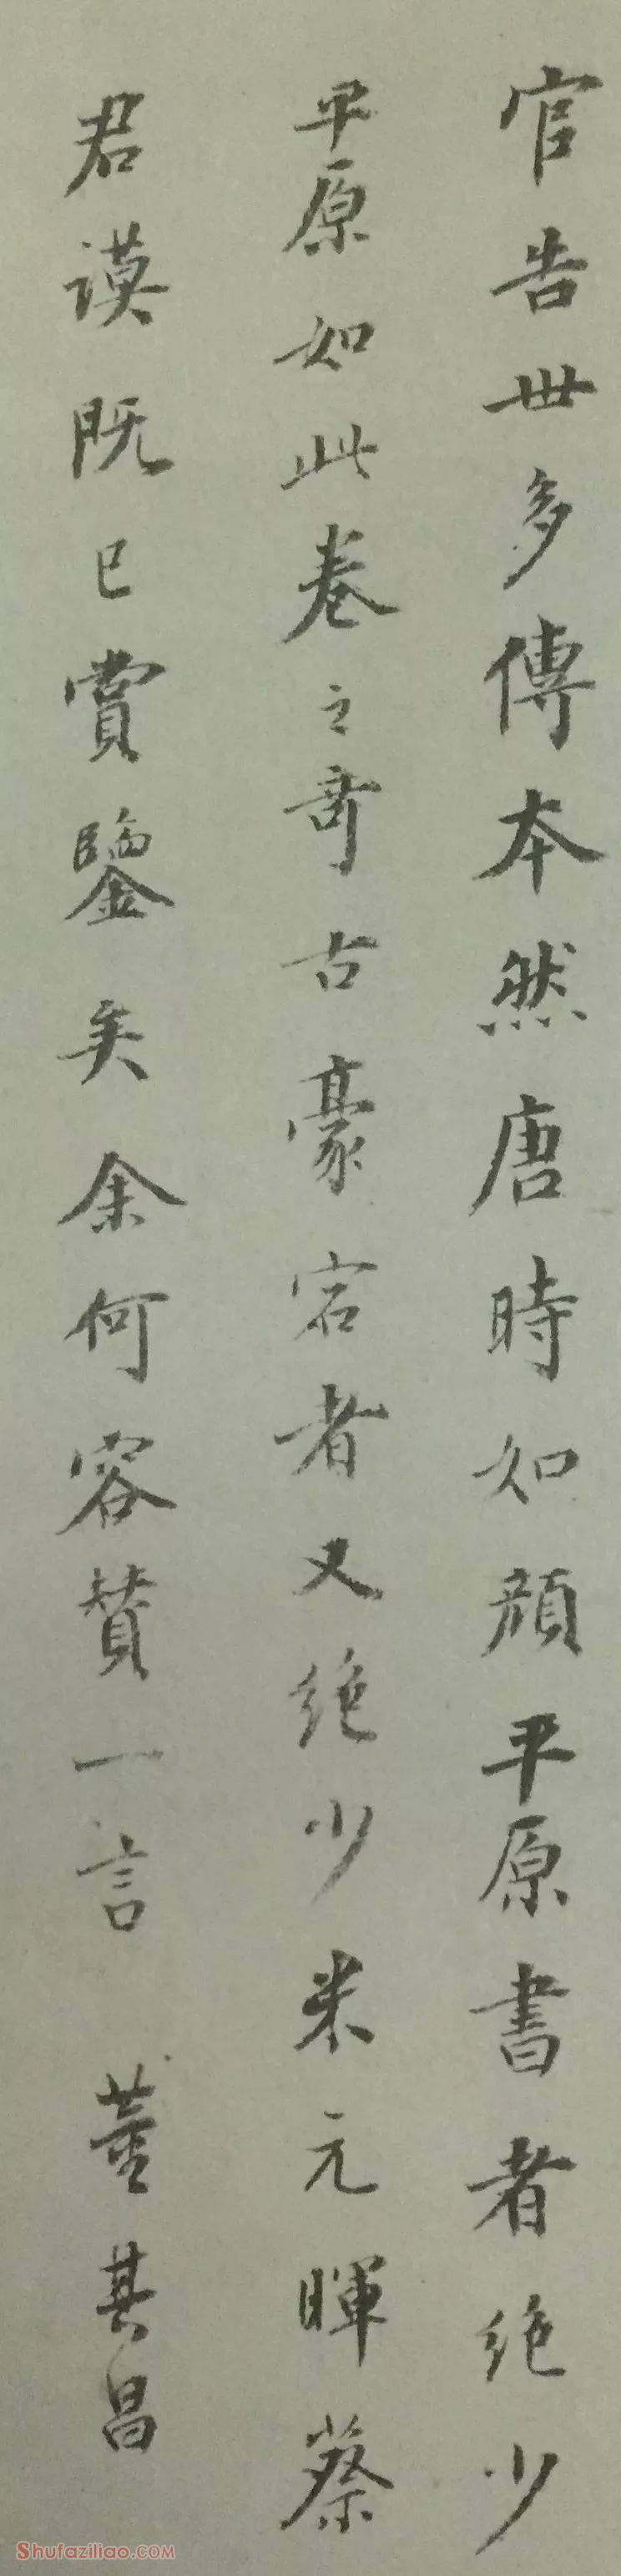 官告世多傳本然唐時如顔平原書者絶少
平原如此卷之奇古豪宕者又絶少米元暉蔡
君謨既已賞鑒矣余何容賛一言 董其昌
Shufaziliao.COM